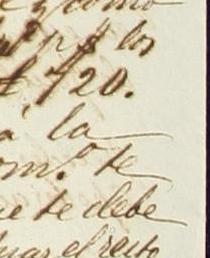 y como
p $ los
$ 720.
a, la
om.º te
ue te debe
uar el resto